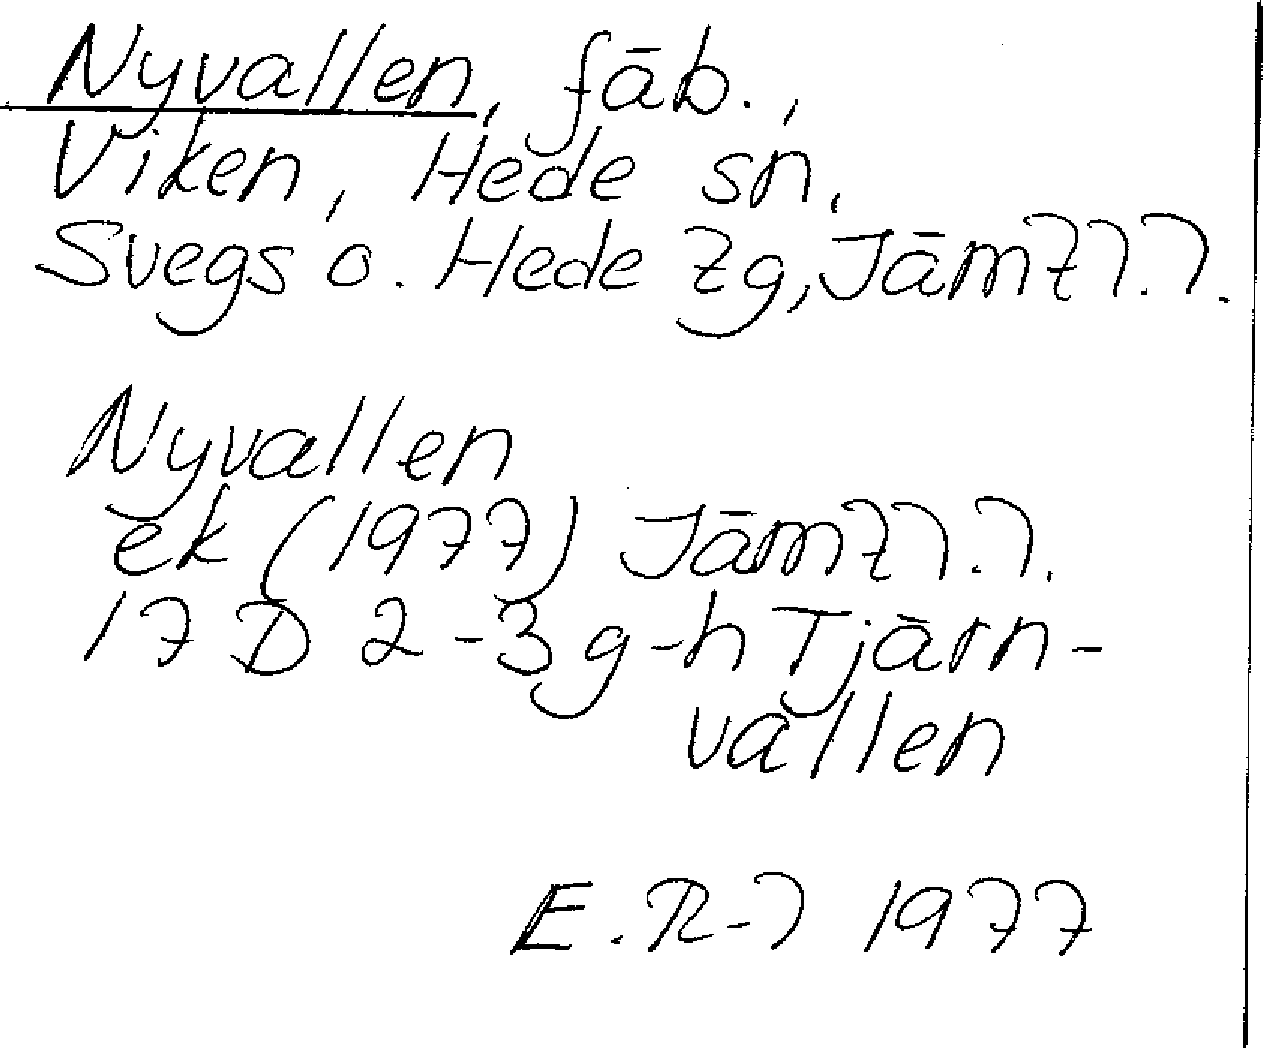 Nyvallen, fäb.,
Viken, Hede sn,
Svegs o. Hede tg, Jämtl.l.
Nyvallen
ek (1977) Jämtl.l.
17 D 2-3 g-h Tjärn-
vallen
E.R-l 1977